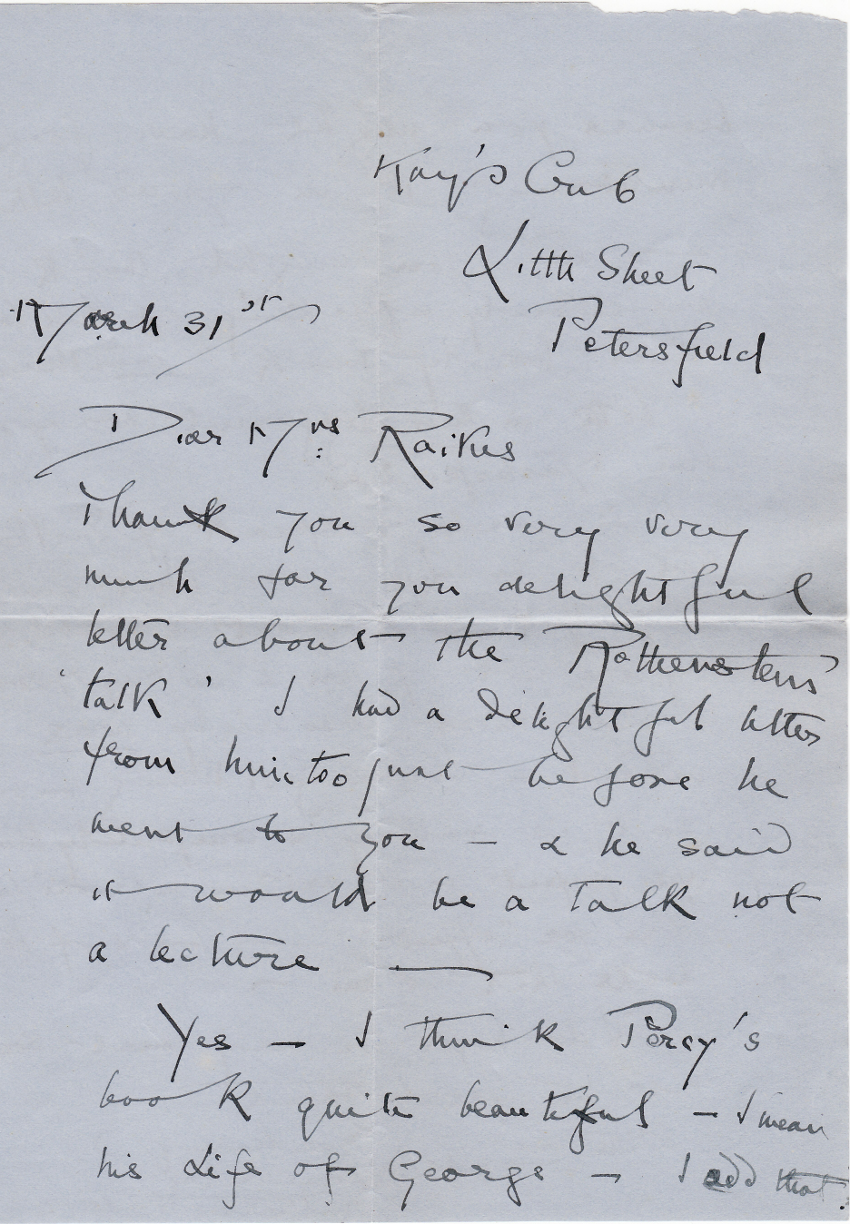 Kay's Crib
Little Sheet
Petersfield
March 31st
Dear Mrs Raikes
Thank you so very very
much for you delightful
letter about the Rothensteins'
'talk' I had a delightful letter
from him too just before he
went to you – & he said
it would be a talk not
a lecture —
Yes – I think Percy's
book quite beautiful – I mean
his Life of George – I add that